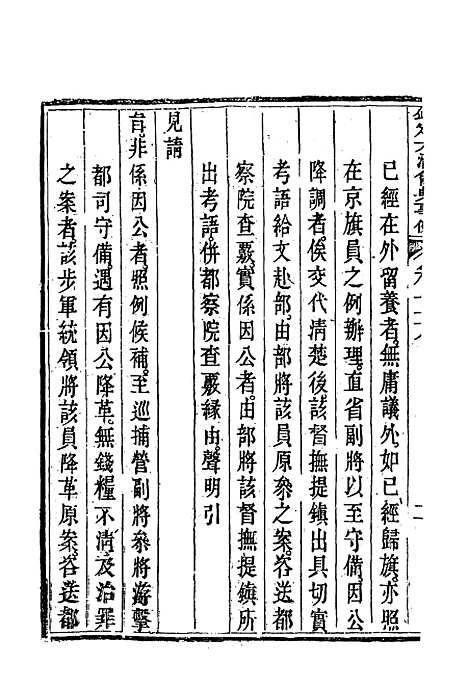 已經在外留養者。無庸議外。如已經歸旗。亦照
在京旗員之例辦理。直省副將以至守備。因公
降調者。俟交代清楚後。該督撫提鎮出具切實
考語。給文赴部。由部將該員原參之案。咨送都
察院查覈。實係因公者。由部將該督撫提鎮所
出考語。併都察院查覈緣由。聲明引
見請
旨。非係因公者。照例候補。至巡捕營副將參將游擊
都司守備。遇有因公降革。無錢糧不清。及治罪
之案者。該步軍統領將該員降革原案。咨送都